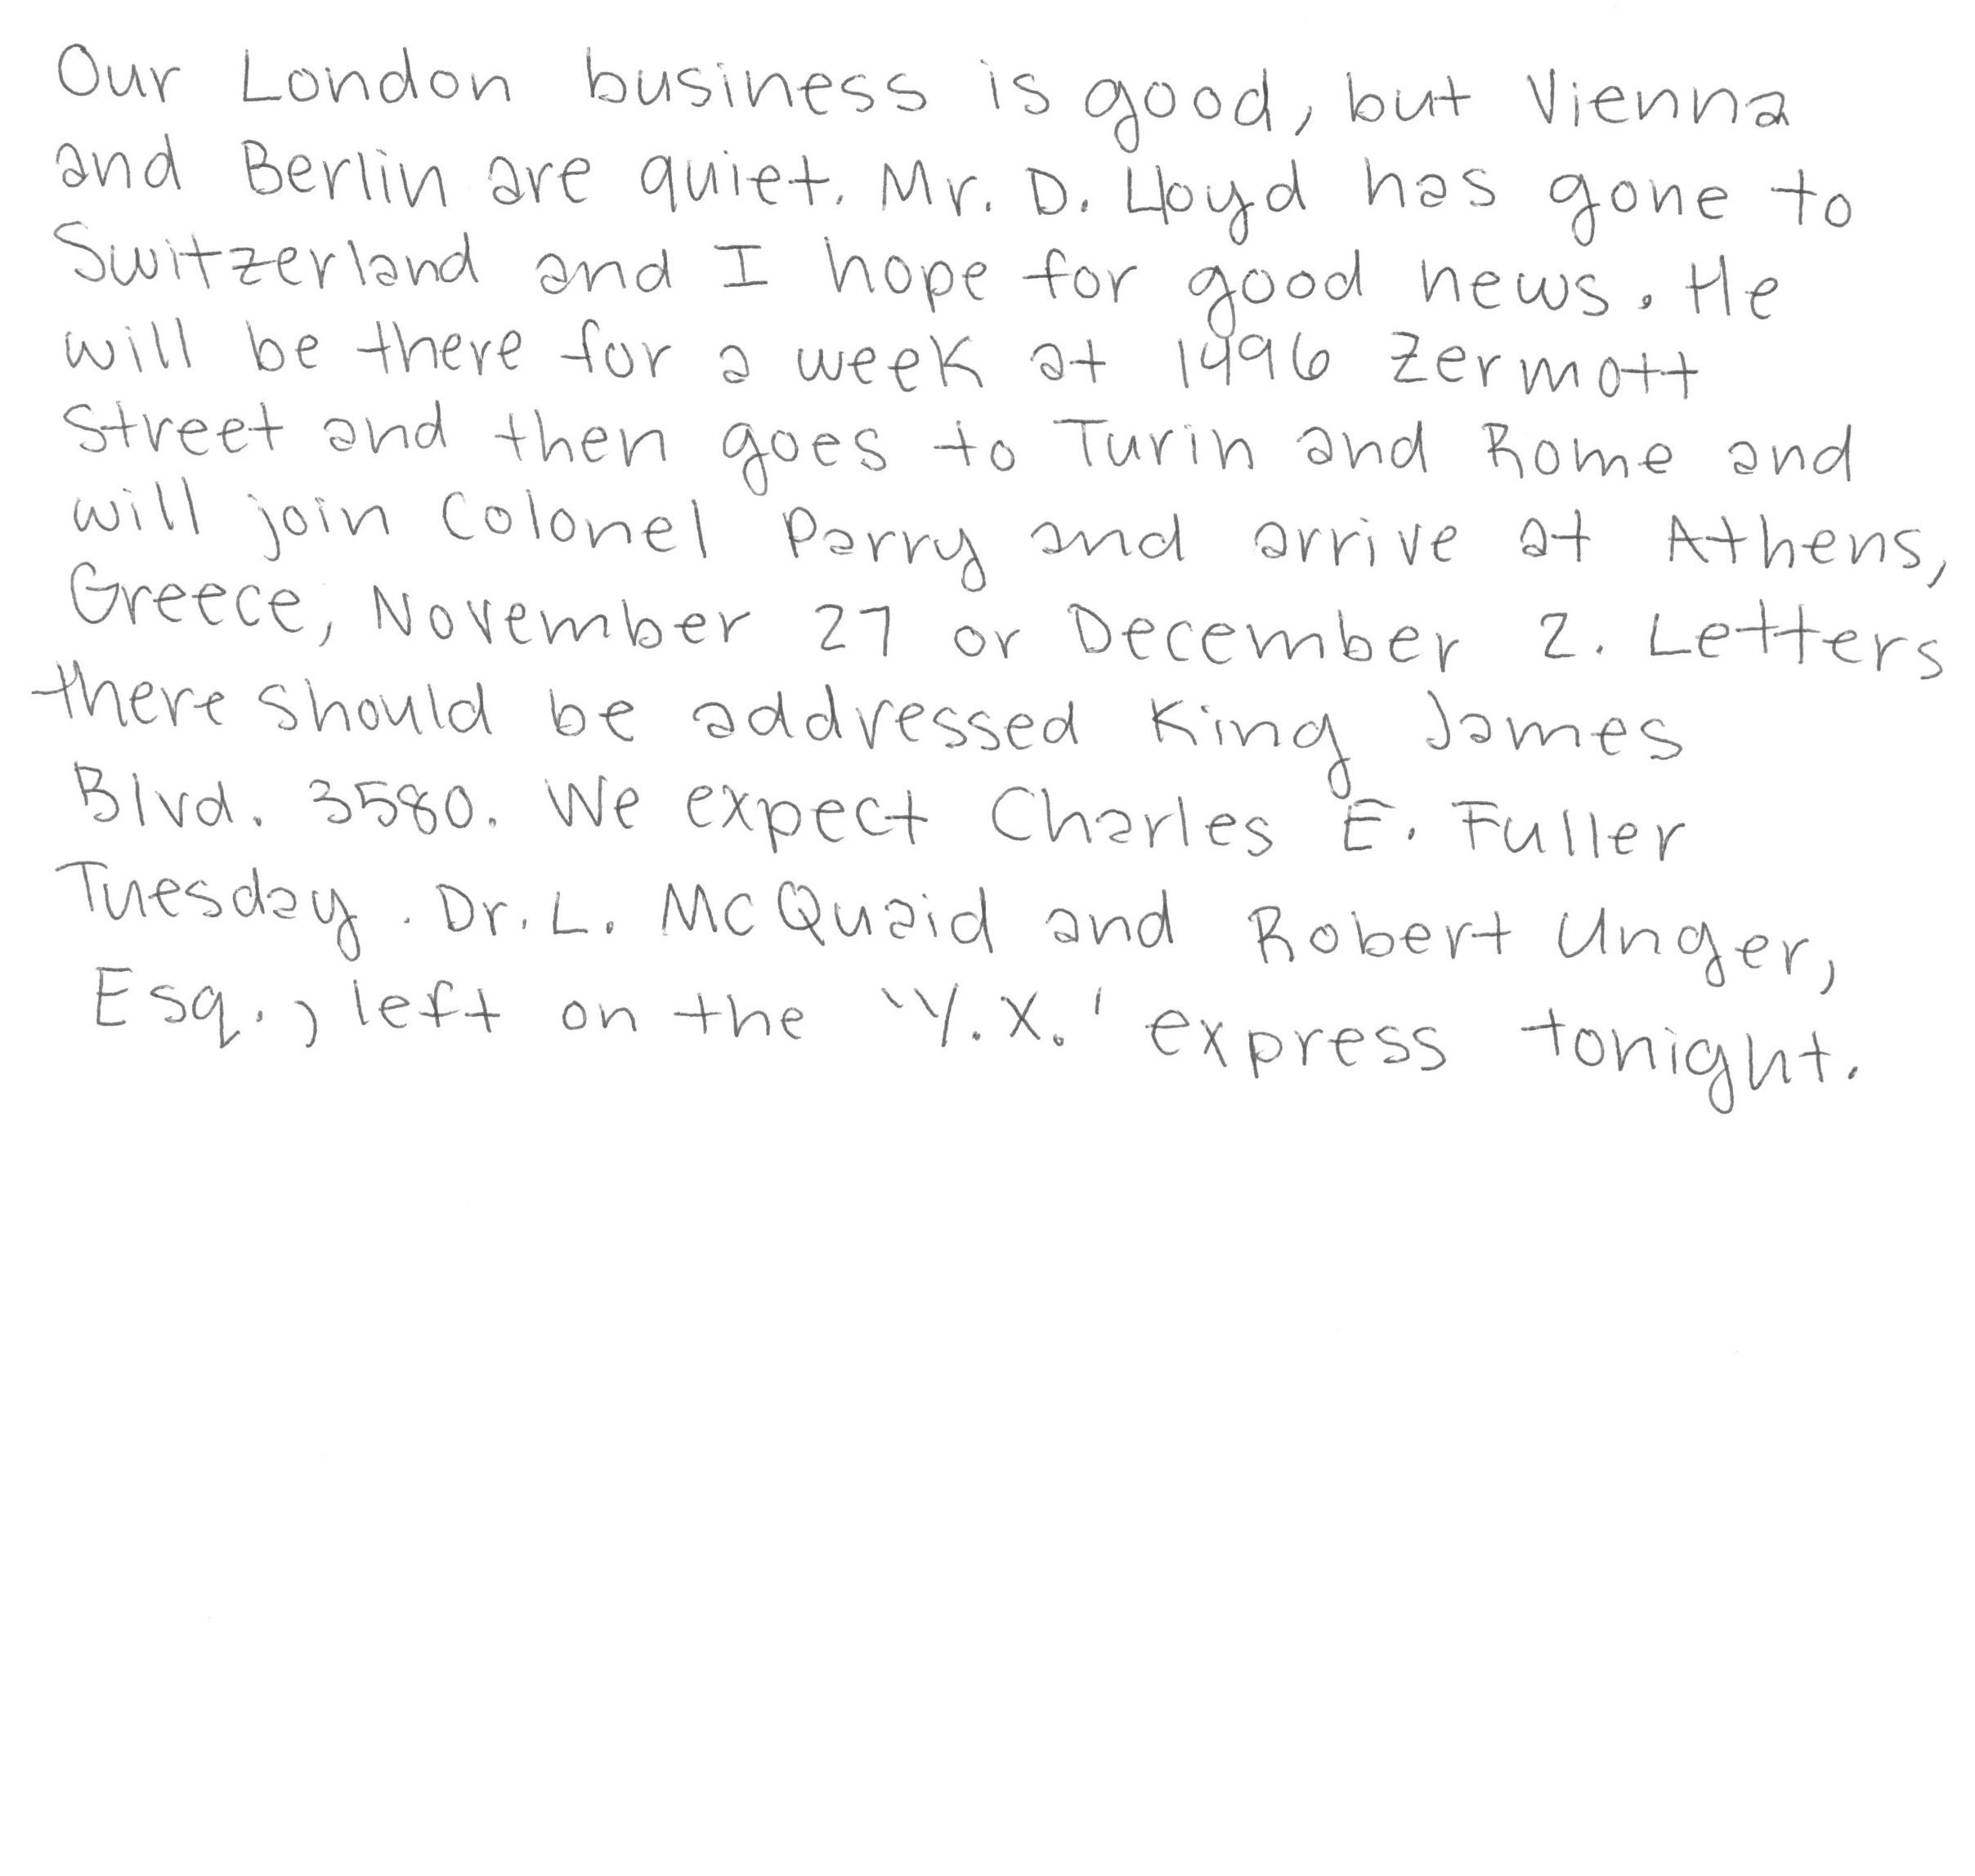 Our London business is good, but Vienna
and Berlin are quiet. Mr. D. Lloyd has gone to
Switzerland and I hope for good news. He
will be there for a week at 1496 Zermott
Street and then goes to Turin and Rome and
will join Colonel Parry and arrive at Athens,
Greece, November 27 or December 2. Letters
there should be addressed King James
Blvd. 3580. We expect Charles E. Fuller
Tuesday. Dr. L. McQuaid and Robert Unger,
Esq., left on the "Y.X.' express tonight.